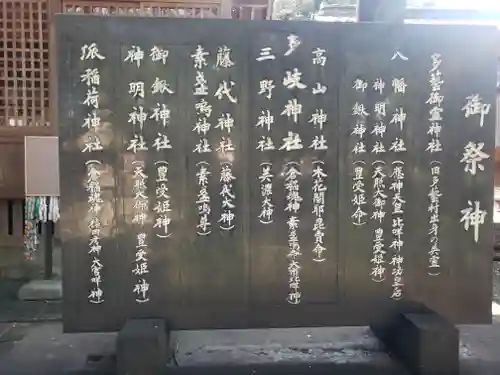 御祭神
多芸御霊神社（旧多芸村出身の英霊）
八幡神社（應神天皇 比咩神 神功皇后）
神明神社（天照大御神 豊受姫神）
御鍬神社（豊受姫命）
高山神社（木花開耶毘賣命）
多岐神社（倉稲魂神 素盞嗚尊 大市比咩神）
三野神社（美濃大神）
藤代神社（藤代大神）
素盞嗚神社（素盞嗚尊）
御鍬神社（豊受姫神）
神明神社（天照大御神 豊受姫神）
稲荷神社（倉稲魂神 佐田彦神 大宮咩神）